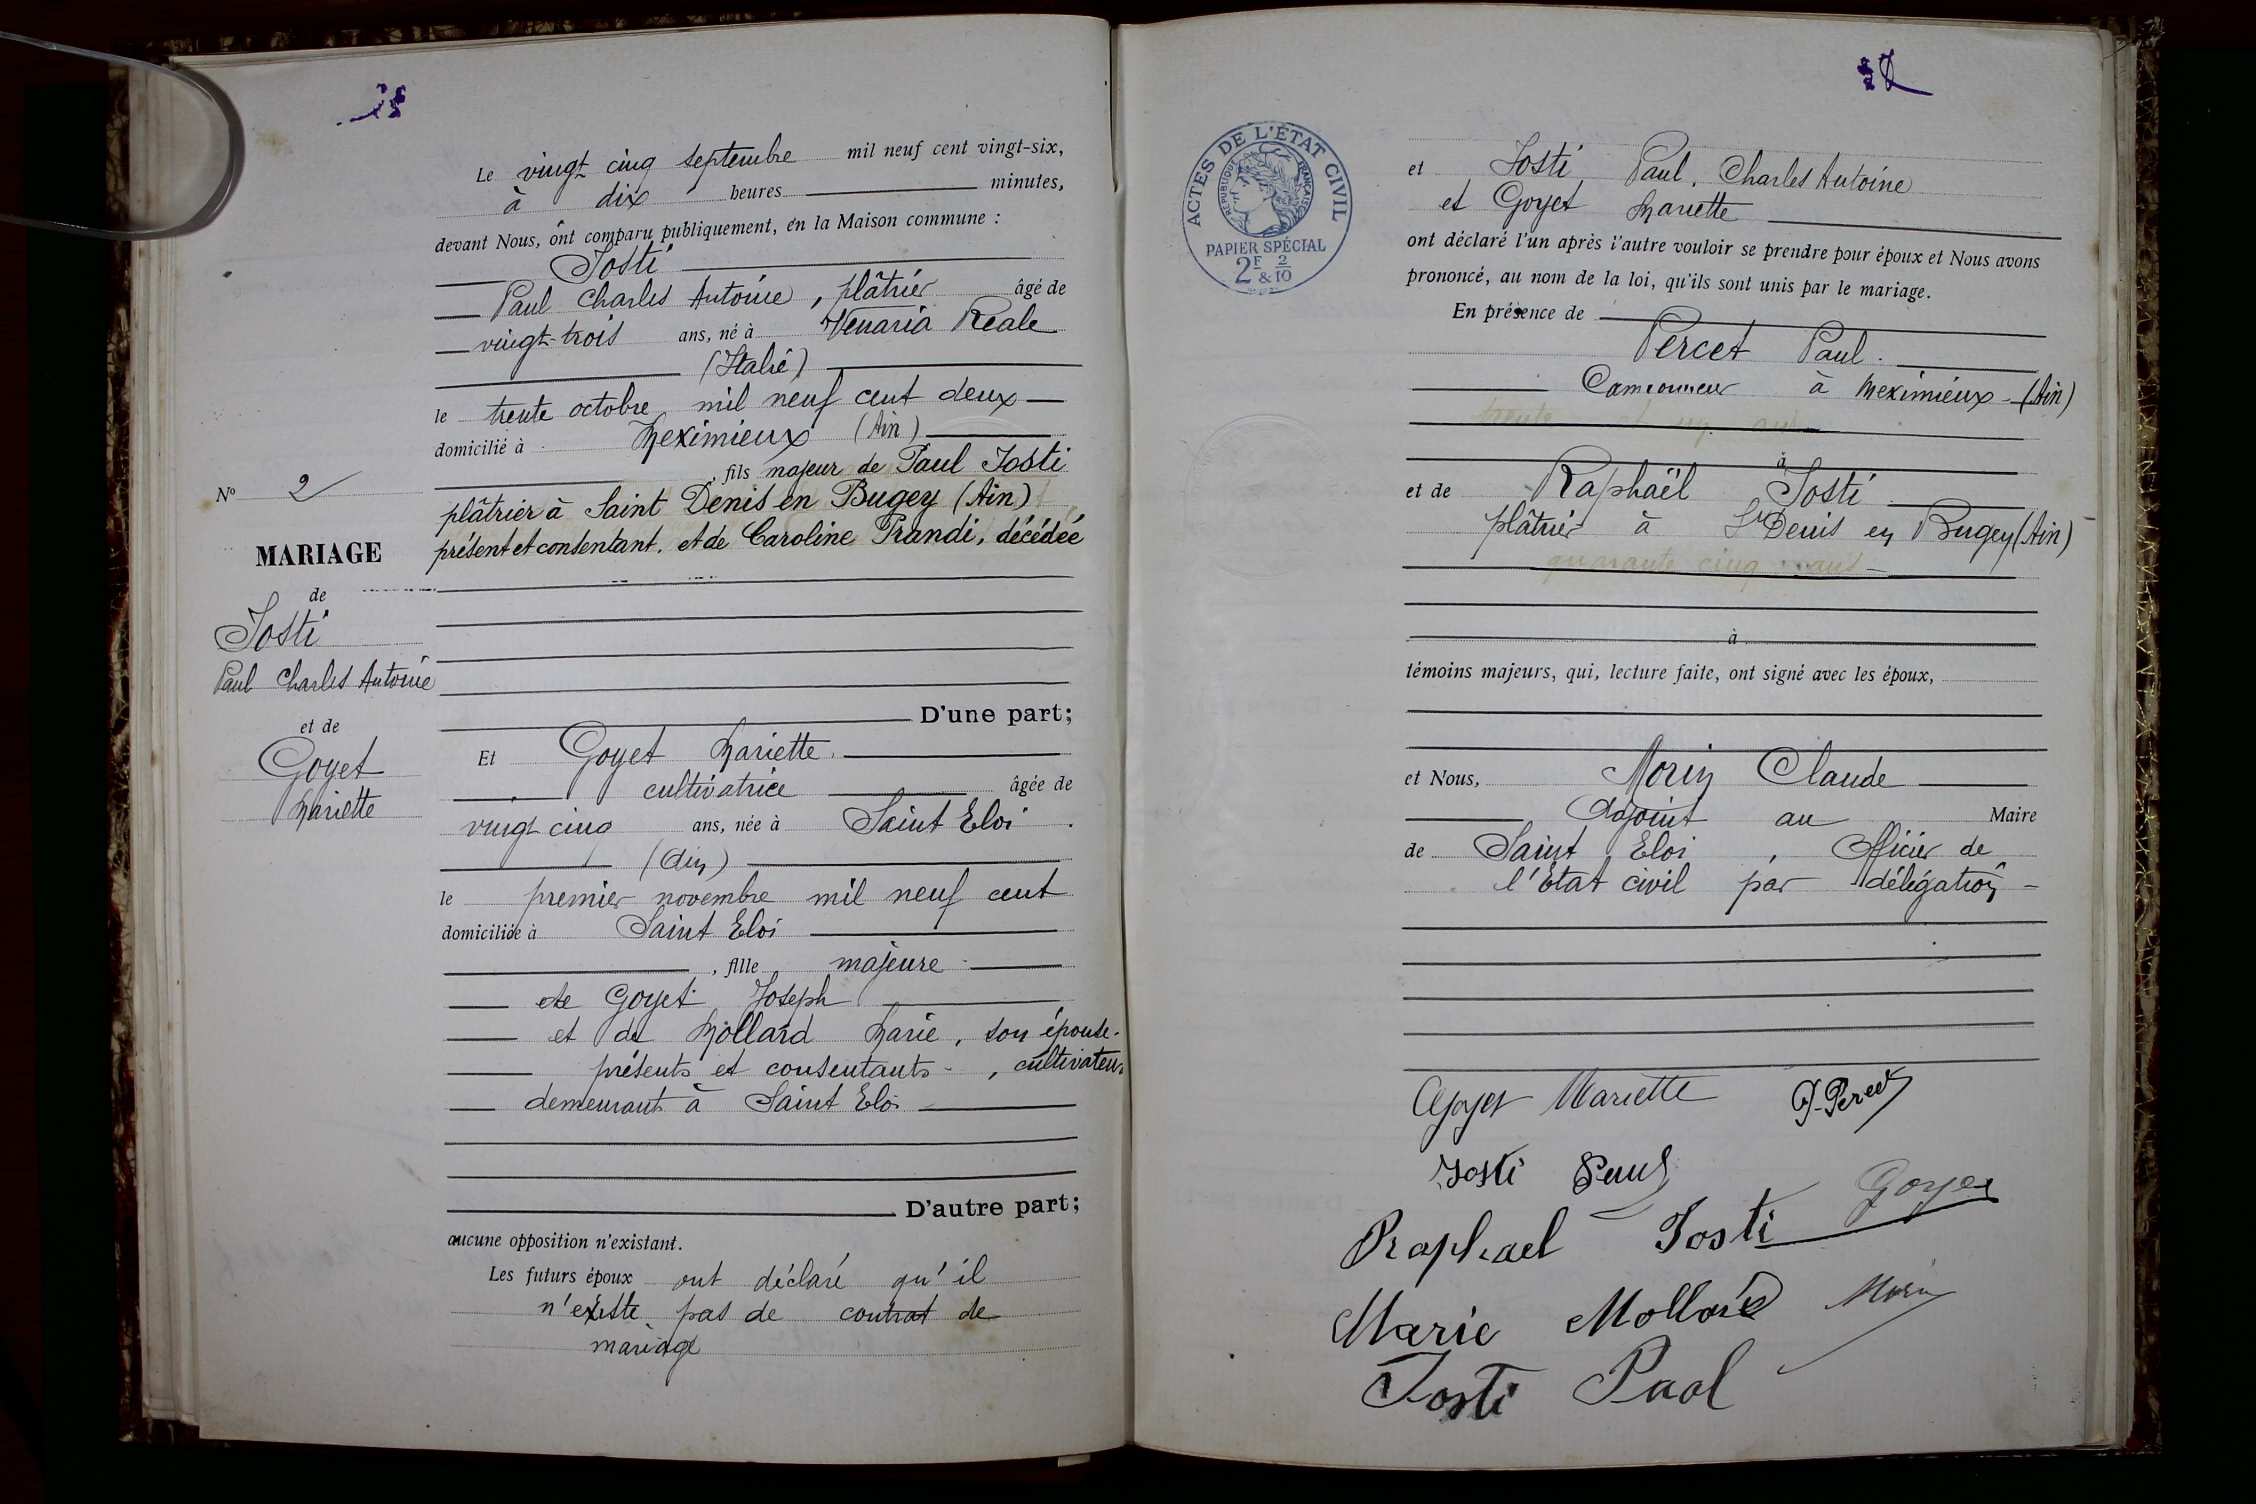 Le vingt cinq septembre mil neuf cent vingt-six,
à dix heures minutes,
devant Nous, ont comparu publiquement, en la Maison commune :
Josti
Paul Charles Antoine, plâtrier âgé de
vingt-trois ans, né à Venaria Reale
(Italie)
le trente octobre mil neuf cent deux
domicilié à Meximieux (Ain)
, fils majeur de Paul Josti
plâtrier à Saint Denis en Bugey (Ain)
présent et consentant. et de Caroline Prandi, décédée
N° 2
MARIAGE
de
Josti
Paul Charles Antoine
et de
Goyet
Mariette
D'une part;
Et Goyet Mariette.
cultivatrice âgée de
vingt cinq ans, née à Saint Eloi
(Ain)
le premier novembre mil neuf cent
domiciliée à Saint Eloi
, fille majeure
de Goyet Joseph
et de Mollard Marie, son épouse.
présents et consentants, cultivateurs
demeurant à Saint Eloi
D'autre part;
aucune opposition n'existant.
Les futurs époux ont déclaré qu'il
n'existe pas de contrat de
mariage
ACTES DE L'ÉTAT CIVIL
RÉPUBLIQUE FRANÇAISE
PAPIER SPÉCIAL
2F & 2/10
et Josti Paul, Charles Antoine
et Goyet Mariette
ont déclaré l'un après l'autre vouloir se prendre pour époux et Nous avons
prononcé, au nom de la loi, qu'ils sont unis par le mariage.
En présence de
Percet Paul.
Camionneur à Meximieux (Ain)
trente et un ans
à
et de Raphaël Josti
plâtrier à St Denis en Bugey (Ain)
quarante cinq ans
à
témoins majeurs, qui, lecture faite, ont signé avec les époux,
et Nous, Morin Claude
Adjoint au Maire
de Saint Eloi, Officier de
l'Etat civil par délégation
Goyet Mariette P. Percet
Josti Paul
Goyet
Raphael Josti
Marie Mollard Morin
Josti Paol